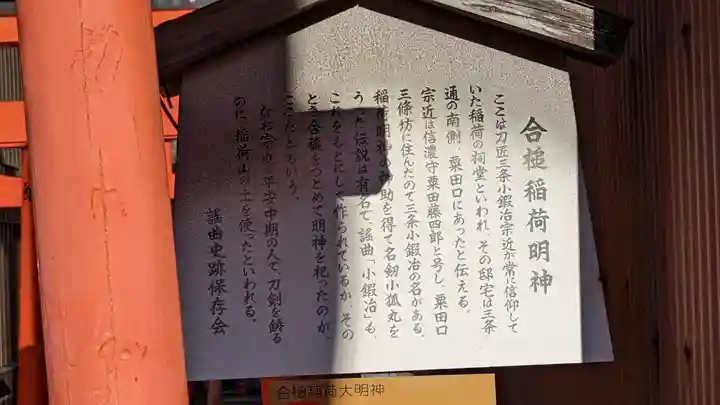 合槌稲荷明神
ここは刀匠三条小鍛冶宗近が常に信仰して
いた稲荷の祠堂といわれ、その邸宅は三条
通の南側、粟田口にあったと伝える。
宗近は信濃守粟田藤四郎と号し、粟田口
三條坊に住んだので三条小鍛冶の名がある。
稲荷明神の神助を得て名剱小狐丸を
うった伝説は有名で、謡曲「小鍛冶」も、
これをもとにして作られているが、その
とき合槌をつとめて明神を祀ったのが
ここだともいう。
なお宗近は平安中期の人で、刀剣を鋳る
のに、稲荷山の土を使ったといわれる。
謡曲史跡保存会
合槌稲荷大明神